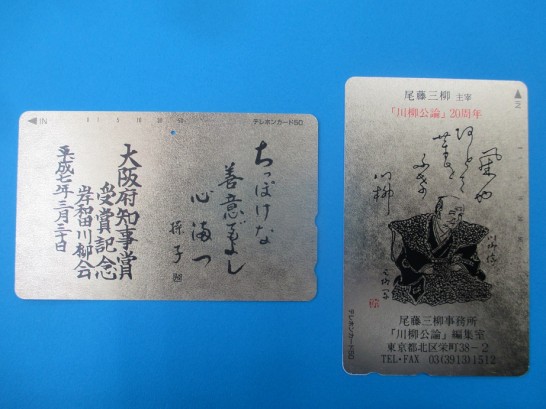 IN
テレホンカード50
ちっぽけな
善意 よし
心満つ
大阪府知事賞
受賞記念
岸和田川柳会
平成七年三月三十日
尾藤三柳 主宰
「川柳公論」20周年
川柳
尾藤三柳事務所
「川柳公論」編集室
東京都北区栄町38−2
TEL・FAX 03(3913)1512
テレホンカード50